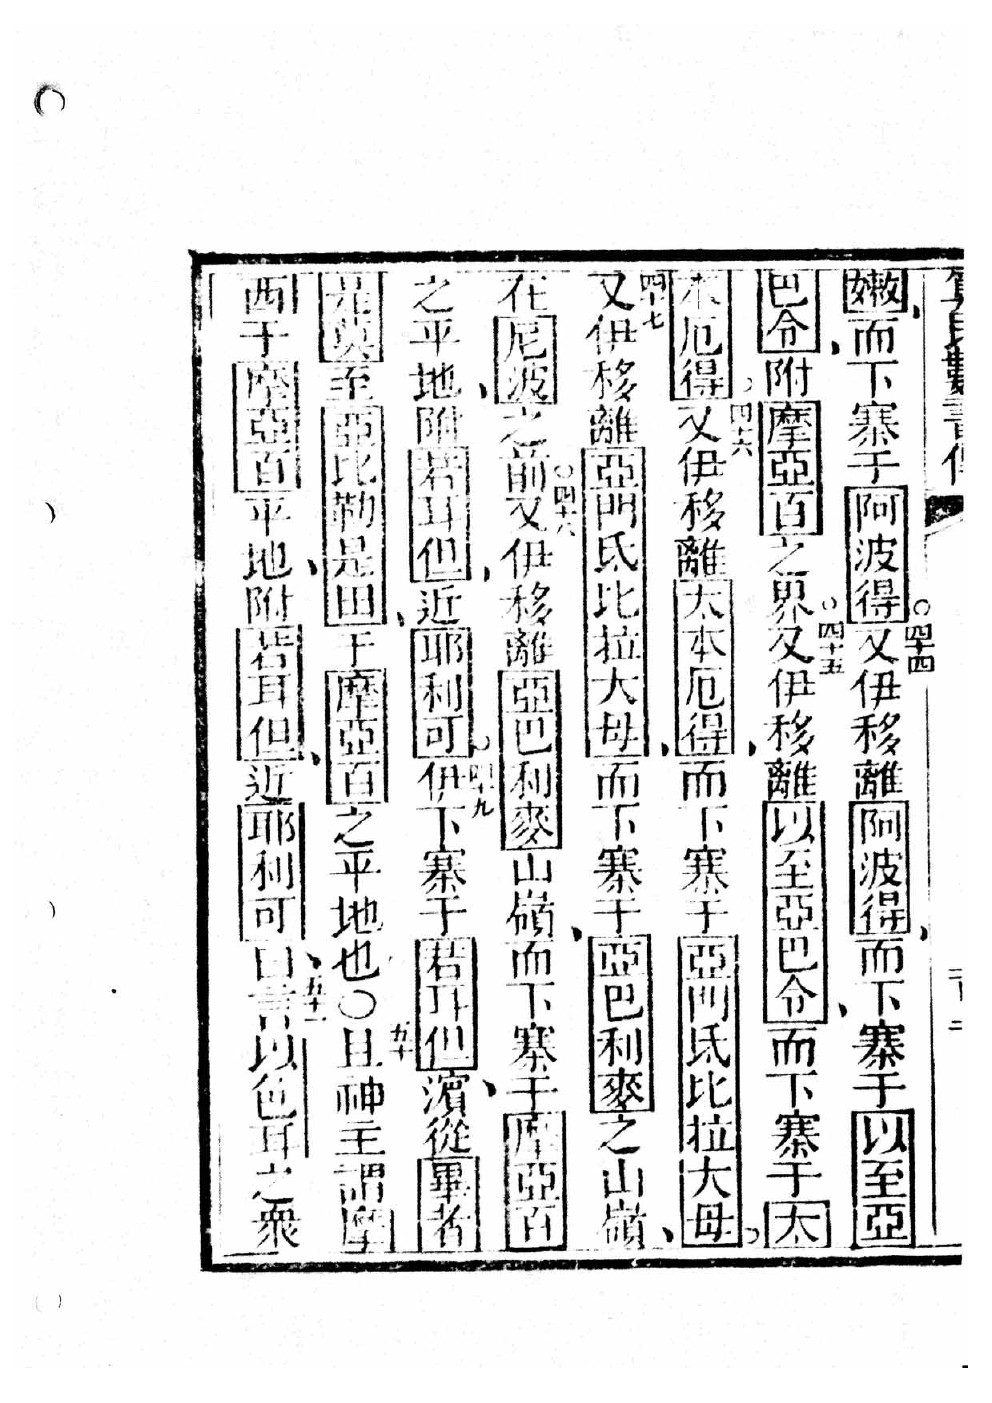 嫩、而下寨于阿波得○四十四又伊移離阿波得、而下寨于以至亞
巴令、附摩亞百之界○四十五又伊移離以至亞巴令、而下寨于太
本厄得○四十六又伊移離太本厄得、而下寨于亞門氏比拉大母○
四十七又伊移離亞門氏比拉大母、而下寨于亞巴利麥之山嶺、
在尼波之前○四十八又伊移離亞巴利麥山嶺、而下寨于摩亞百
之平地、附若耳但、近耶利可○四十九伊下寨于若耳但濱、從畢者
是莫至亞比勒是田、于摩亞百之平地也○五十且神主謂摩
西于摩亞百平地、附若耳但、近耶利可、曰五十一言以色耳之衆